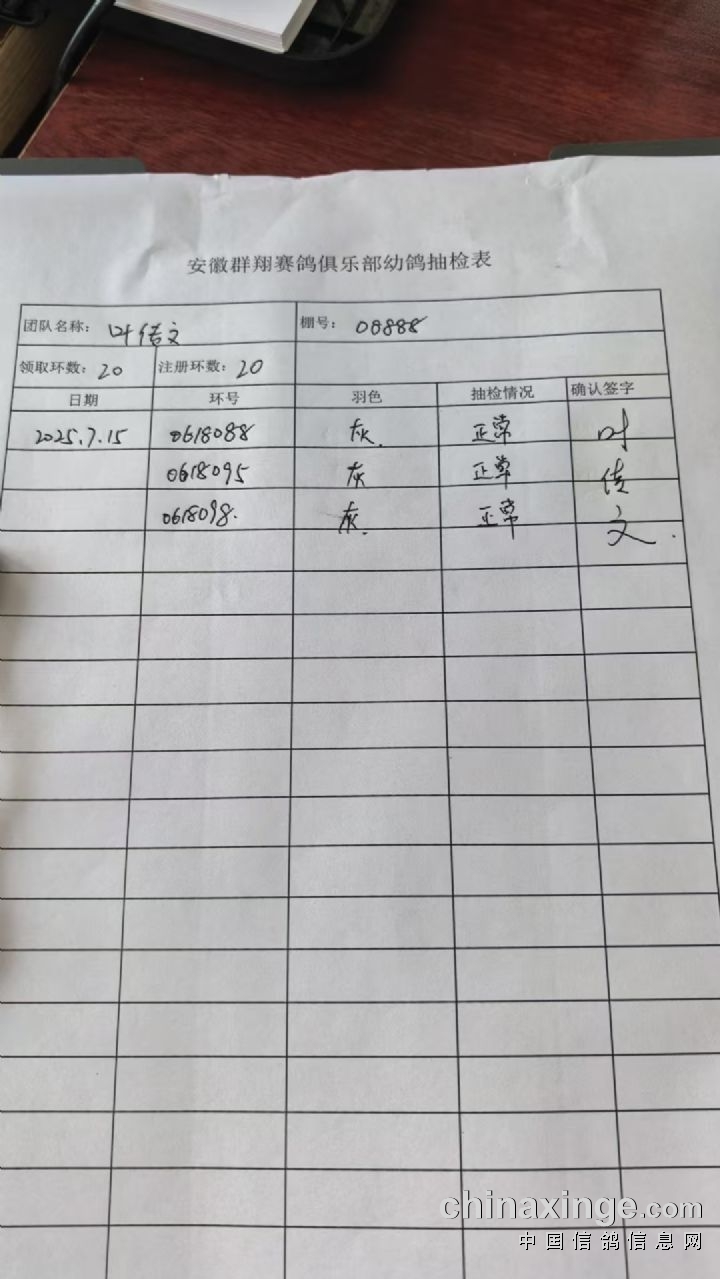 安徽群翔赛鸽俱乐部幼鸽抽检表
团队名称: 叶传文 棚号: 08888
领取环数: 20 注册环数: 20
日期 环号 羽色 抽检情况 确认签字
2025.7.15 0618088 灰. 正常 叶
0618095 灰 正常 传
0618098. 灰. 正常 文.
chinaxinge.com
中国信鸽信息网